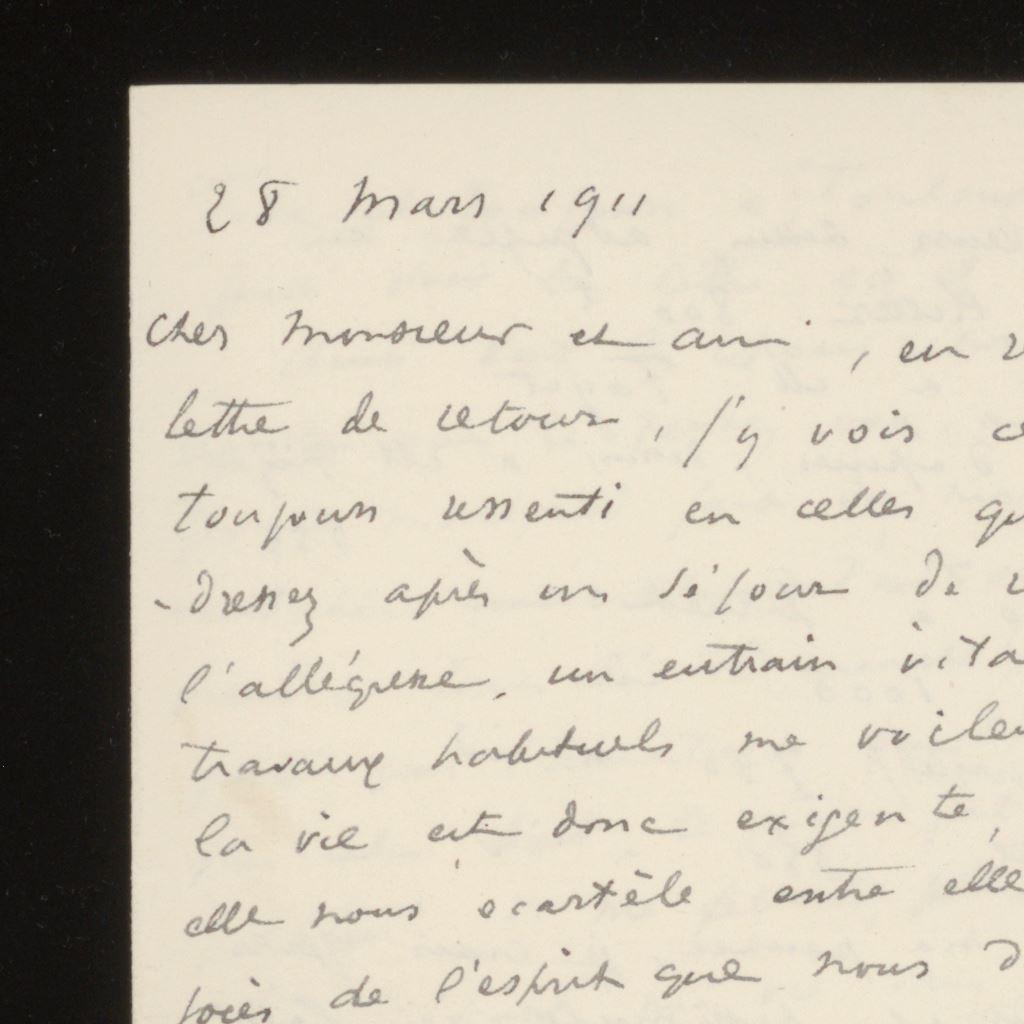 28 Mars 1911
Cher Monsieur et ami, en
lettre de retour, j'y vois ce
toujours ressenti en celles qu
-dressez après un séjour de v
l'allégresse, un entrain vita
travaux habituels me voilen
la vie est donc exigente,
elle nous écartèle entre elle
joies de l'esprit que nous d